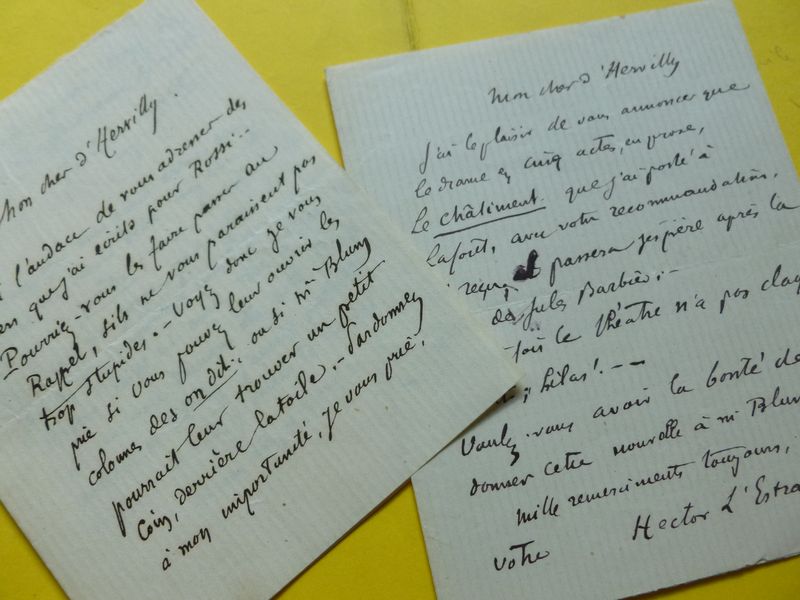 Mon cher d'Hervilly.
l'audace de vous adresser des
que j'ai écrits pour Rossi..
Pourriez-vous les faire passer au
Rappel, s'ils ne vous paraissent pas
trop stupides. - Voyez donc je vous
prie si vous pouvez leur ouvrir les
colonnes des on dit., ou si Mr Blum
pourrait leur trouver un petit
coin, derrière la toile. - Pardonnez
à mon importunité, je vous prie,
Mon cher d'Hervilly
J'ai le plaisir de vous annoncer que
le drame en cinq actes, en prose,
Le châtiment que j'ai porté à
Lafont, avec votre recommandation,
reçu, passera j'espère après la
de Jules Barbier. -
fois le théâtre n'a pas
hélas! . --
Voulez-vous avoir la bonté de
donner cette nouvelle à Mr Blum
Mille remerciments toujours,
votre Hector L'Estra